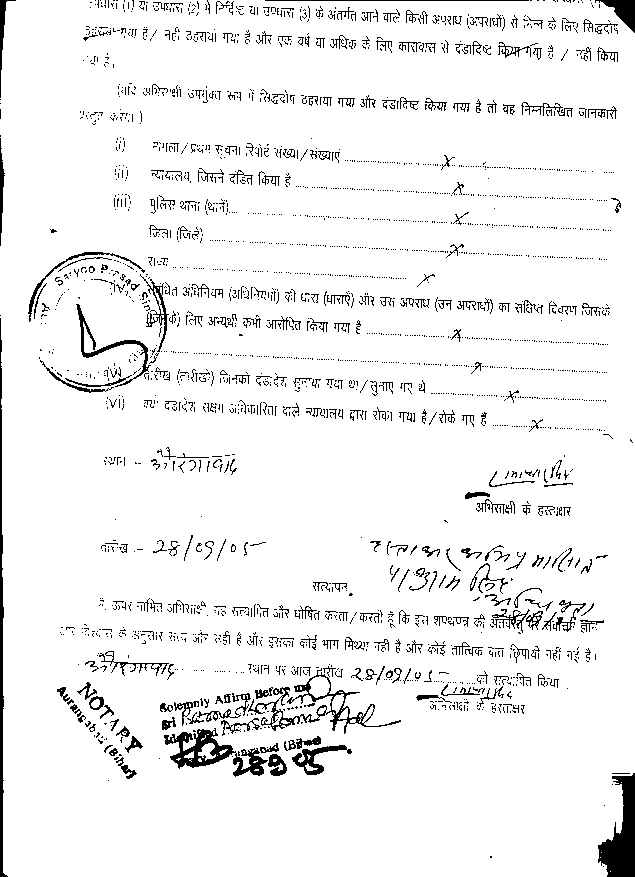 उपधारा (1) या उपधारा (2) में निर्दिष्ट या उपधारा (3) के अंतर्गत आने वाले किसी अपराध (अपराधों) से भिन्न के लिए सिद्धदोष
ठहराया गया है / नहीं ठहराया गया है और एक वर्ष या अधिक के लिए कारावास से दंडादिष्ट किया गया है / नहीं किया
गया है।
(यदि अभिसाक्षी उपर्युक्त रूप में सिद्धदोष ठहराया गया और दंडादिष्ट किया गया है तो वह निम्नलिखित जानकारी
प्रस्तुत करेगा।)
(i) मामला / प्रथम सूचना रिपोर्ट संख्या / संख्याएं ........ x
(ii) न्यायालय, जिसने दंडित किया है ........ x
(iii) पुलिस थाना (थाने) ........ x
जिला (जिले) ........ x
राज्य ........ x
अधिनियम (अधिनियमों) की धारा (धाराएँ) और उस अपराध (उन अपराधों) का संक्षिप्त विवरण जिसके
(जिनके) लिए अभ्यर्थी को आरोपित किया गया है ........ x
........ x
तारीख (तारीखें) जिनको दंडादेश सुनाया गया था / सुनाए गए थे ........ x
(vi) क्या दंडादेश सक्षम अधिकारिता वाले न्यायालय द्वारा रोका गया है / रोके गए हैं ........ x
Saryoo Prasad Singh
स्थान :- औरंगाबाद
अभिसाक्षी के हस्ताक्षर
तारीख :- 28/09/05
सत्यापन
28/09/05
मैं, ऊपर नामित अभिसाक्षी, यह सत्यापित और घोषित करता / करती हूँ कि इस शपथपत्र की अंतर्वस्तु पर सर्वोत्तम ज्ञान
और विश्वास के अनुसार सत्य और सही है और इसका कोई भाग मिथ्या नहीं है और कोई तात्विक बात छिपायी नहीं गई है।
औरंगाबाद ........ स्थान पर आज तारीख 28/09/05 ........ को सत्यापित किया
अभिसाक्षी के हस्ताक्षर
NOTARY
Aurangabad (Bihar)
Solemnly Affirm Before me
Sri
Identified
Aurangabad (Bihar)
28 9 05